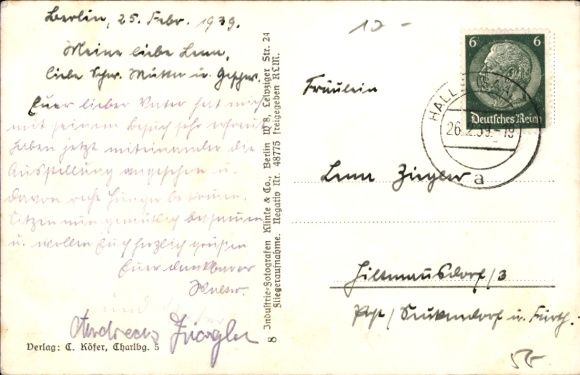 Berlin, 25. Febr. 1939.
Meine liebe Lenn,
liebe Schw. Mutter u. Geschw.
Euer lieber Vater hat mich
mit seinem Besuch sehr erfreut
haben jetzt miteinander die
Ausstellung angesehen u.
davon recht Hunger bekommen.
Sitzen nun gemütlich beisammen
u. wollen Euch herzlich grüßen
Euer dankbarer
Andreas Ziegler
Verlag: C. Köfer, Charlbg. 5
8 Industrie-Fotografen Klinke & Co., Berlin W 8, Leipziger Str. 24
Fliegeraufnahme. Negativ Nr. 48775 freigegeben RLM.
12 -
6 6
Deutsches Reich
HALL
26.2.39.-19
a
Fräulein
Lenn Ziegler
/3
Post/ u. Fürth.